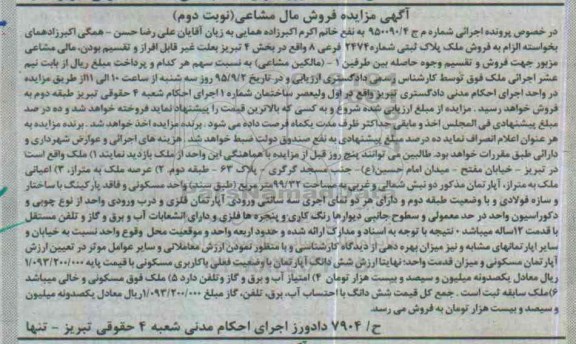 آگهی مزایده فروش مال مشاعی(نوبت دوم)
در خصوص پرونده اجرائی شماره م ج ۹۵۰۰۹۰/۴ به نفع خانم اکرم اکبرزاده همایی به زیان آقایان علی رضا حسن - همگی اکبرزادهمای
بخواسته الزام به فروش ملک پلاک ثبتی شماره ۲۴۷۴ فرعی ۸ واقع در بخش ۴ تبریز بعلت غیر قابل افراز و تقسیم بودن، مالی مشاعی
مزبور جهت فروش و تقسیم وجوه حاصله بین طرفین ۱ - (مالکین مشاعی) به نسبت سهم هر کدام و پرداخت مبلغ ریال از بابت نیم
عشر اجرائی ملک فوق توسط کارشناس رسمی دادگستری ارزیابی و در تاریخ ۹۵/۹/۲ روز سه شنبه از ساعت ۱۰ الی ۱۱ از طریق مزایده
در واحد اجرای احکام مدنی دادگستری تبریز واقع در اول ولیعصر ساختمان شماره ۱ اجرای احکام شعبه ۴ حقوقی تبریز طبقه دوم به
فروش خواهد رسید . مزایده از مبلغ ارزیابی شده شروع و به کسی که بالاترین قیمت را پیشنهاد نماید فروخته خواهد شد و ده در صد
مبلغ پیشنهادی فی المجلس اخذ و مابقی حداکثر ظرف مدت یکماه فرصت داده می شود . برنده مزایده اخذ خواهد شد. برنده مزایده به
هر عنوان اعلام انصراف نماید ده درصد مبلغ پیشنهادی به نفع صندوق دولت ضبط خواهد شد. هزینه های اجرائی و عوارض شهرداری و
دارائی طبق مقررات خواهد بود. طالبین می توانند پنج روز قبل از مزایده با هماهنگی این واحد از ملک بازدید نمایند ۱) ملک واقع است
در تبریز - خیابان مفتح - میدان امام حسین(ع)- جنب مسجد گرگری - پلاک ۶۳ - طبقه دوم. ۲) عرصه ملک به متراژ، ۳) اعیانی
ملک به متراژ، آپارتمان مذکور دو نبش شمالی و غربی به مساحت ۹۹/۳۲ متر مربع (طبق سند) واحد مسکونی و فاقد پارکینگ با ساختار
و سازه فولادی و با وضعیت طبقه دوم و دارای هر دو نمای آجری - سفالی ورودی آپارتمان فلزی و درب ورودی واحد از نوع چوبی و
دکوراسیون واحد در حد معمولی و سطوح جانبی دیوارها رنگ کاری و پنجره ها فلزی و دارای انشعابات آب و برق و گاز و تلفن مستقل
با قدمت ۱۲ساله میباشد ۰ نتیجه با توجه به اسناد و مدارک ارائه شده و حدود اربعه واحد و موقعیت محل وقوع واحد نسبت به خیابان و
سایر آپارتمانهای مشابه و نیز میزان بهره دهی از دیدگاه کارشناسی و با منظور نمودن ارزش معاملاتی و سایر عوامل موثر در تعیین ارزش
آپارتمان مسکونی و میزان قدمت واحد؛ نهایتا ارزش شش دانگ آپارتمان با وضعیت فعلی با کاربری مسکونی با قیمت پایه ۱/۰۹۳/۲۰۰/۰۰۰
ریال معادل یکصدونه میلیون و سیصد و بیست هزار تومان ۴) امتیاز آب و برق و گاز و تلفن دارد ۵) ملک فوق مسکونی و خالی میباشد
۶)ملک سابقه ثبت است . جمع کل قیمت شش دانگ با احتساب آب، برق، تلفن، گاز مبلغ ۱/۰۹۳/۲۰۰/۰۰۰ریال معادل یکصدونه میلیون
و سیصد و بیست هزار تومان به فروش می رسد.
ح/ ۷۹۰۴ دادورز اجرای احکام مدنی شعبه ۴ حقوقی تبریز - تنها